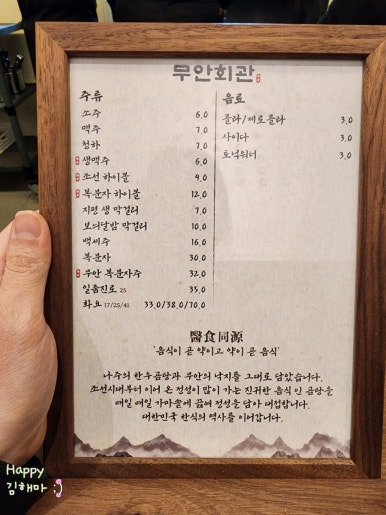 무안회관
주류
소주 6.0
맥주 7.0
청하 7.0
생맥주 6.0
조선 하이볼 9.0
복분자 하이볼 12.0
지평 생 막걸리 7.0
보늬달밤 막걸리 10.0
백세주 16.0
복분자 30.0
무안 복분자주 32.0
일품진로 25 35.0
화요 17/25/41 33.0/38.0/70.0
음료
콜라/제로콜라 3.0
사이다 3.0
토닉워터 3.0
醫食同源
'음식이 곧 약이고 약이 곧 음식'
나주의 한우곰탕과 무안의 낙지를 그대로 담았습니다.
조선시대부터 이어 온 정성이 많이 가는 진귀한 음식 인 곰탕을
매일 매일 가마솥에 끓여 정성을 담아 대접합니다.
대한민국 한식의 역사를 이어갑니다.
Happy
김해마 :)